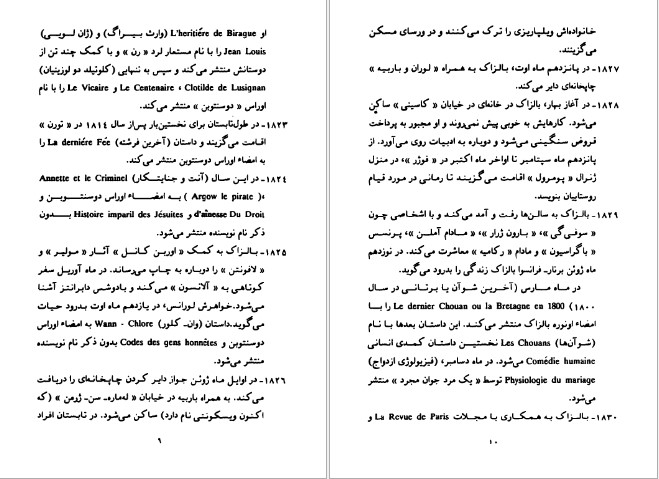 او L'heritiére de Birague (وارث بیراگ) و (ژان لویی)
Jean Louis را با نام مستعار لرد « رن » و با کمک چند تن از
دوستانش منتشر می‌کند و سپس به تنهایی (کلوتیلد دو لوزینیان)
Clotilde de Lusignan ، Le Centenaire و Le Vicaire را با نام
اوراس « دوسنتوبن » منتشر می‌کند.
۱۸۲۳- در طول‌تابستان برای نخستین‌بار پس‌از سال ۱۸۱۴ در « تورن »
اقامت می‌گزیند و داستان (آخرین فرشته) La derniére Fée را
به امضاء اوراس دوسنتوبن منتشر می‌کند.
۱۸۲۴- در این سال (آنت و جنایتکار) Annette et le Criminel
،( Argow le pirate ) به امضاء اوراس دوسنتوبن و
d'aînesse Du Droit و Histoire imparil des Jésuites بدون
ذکر نام نویسنده منتشر می‌شود.
۱۸۲۵- بالزاک به کمک « اوربن کانل » آثار « مولیر » و
« لافونتن » را دوباره به چاپ می‌رساند. در ماه آوریل سفر
کوتاهی به « آلانسون » می‌کند و بادوشس دابرانتز آشنا
می‌شود.خواهرش لورانس، در یازدهم ماه اوت بدرود حیات
می‌گوید.داستان (وان- کلور) Wann - Chlore به امضاء اوراس
دوسنتوبن و Codes des gens honnétes بدون ذکر نام نویسنده
منتشر می‌شود.
۱۸۲۶- در اوایل ماه ژوئن جواز دایر کردن چاپخانه‌ای را دریافت
می‌کند. به همراه باربیه در خیابان « له‌ماره- سن- ژرمن » (که
اکنون ویسکونتی نام دارد) ساکن می‌شود. در تابستان افراد
۹
خانواده‌اش ویلپاریزی را ترک می‌کنند و در ورسای مسکن
می‌گزینند.
۱۸۲۷- در پانزدهم ماه اوت، بالزاک به همراه « لوران و باربیه »
چاپخانه‌ای دایر می‌کند.
۱۸۲۸- در آغاز بهار، بالزاک در خانه‌ای در خیابان « کاسینی » ساکن
می‌شود. کارهایش به خوبی پیش نمی‌روند و او مجبور به پرداخت
قروض سنگینی می‌شود و دوباره به ادبیات روی می‌آورد. از
پانزدهم ماه سپتامبر تا اواخر ماه اکتبر در « فوژر »، در منزل
ژنرال « پومرول » اقامت می‌گزیند تا رمانی در مورد قیام
روستاییان بنویسد.
۱۸۲۹- بالزاک به سالن‌ها رفت و آمد می‌کند و با اشخاصی چون
« سوفی‌گی »، « بارون ژرار »، « مادام آملن »، پرنسس
« باگراسیون » و مادام « رکامیه » معاشرت می‌کند. در نوزدهم
ماه ژوئن برنار- فرانسوا بالزاک زندگی را بدرود می‌گوید.
در ماه مارس (آخرین شوآن یا برتانی در سال
۱۸۰۰) Le dernier Chouan ou la Bretagne en 1800 را با
امضاء اونوره بالزاک منتشر می‌کند. این داستان بعدها با نام
(شوآن‌ها) Les Chouans نخستین داستان کمدی انسانی
Comédie humaine می‌شود. در ماه دسامبر، (فیزیولوژی ازدواج)
Physiologie du mariage توسط « یک مرد جوان مجرد » منتشر
می‌شود.
۱۸۳۰- بالزاک به همکاری با مجلات La Revue de Paris و
۱۰